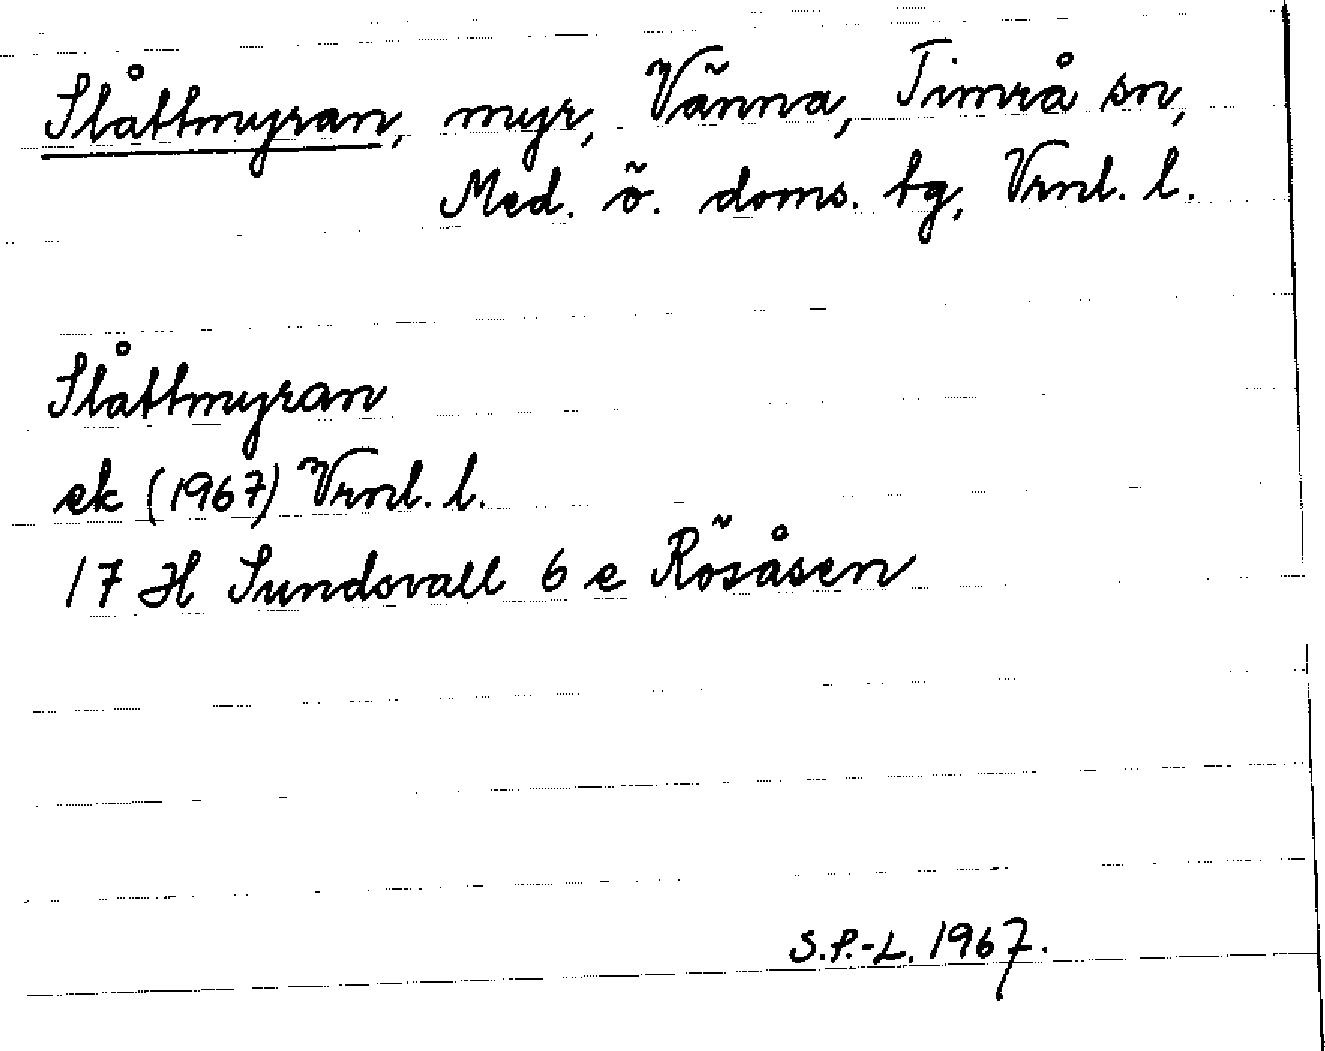 Slåttmyran, myr, Vänna, Timrå sn,
Med. ö. doms. tg, Vrnl. l.
Slåttmyran
ek (1967) Vrnl. l.
17 H Sundsvall 6 e Rösåsen
S.P.-L. 1967.